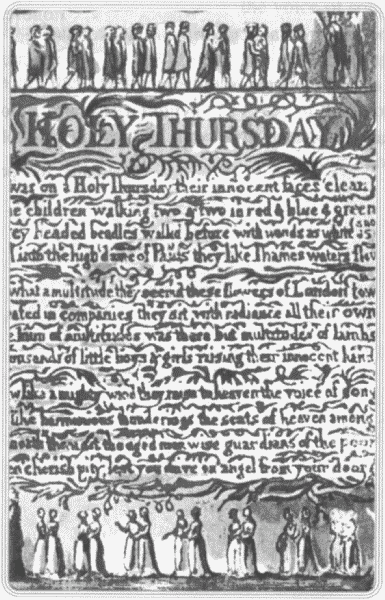 HOLY THURSDAY
was on a Holy Thursday their innocent faces clean
e children walking two & two in red & blue & green
ey headed beadles walkd before with wands as white as snow
into the high dome of Pauls they like Thames waters flow
what a multitude they seemd these flowers of London tow
ated in companies they sit with radiance all their own
hum of multitudes was there but multitudes of lambs
ousands of little boys & girls raising their innocent hand
w like a mighty wind they raise to heaven the voice of song
like harmonious thunderings the seats of heaven among
neath them sit the aged men wise guardians of the poor
n cherish pity lest you drive an angel from your door